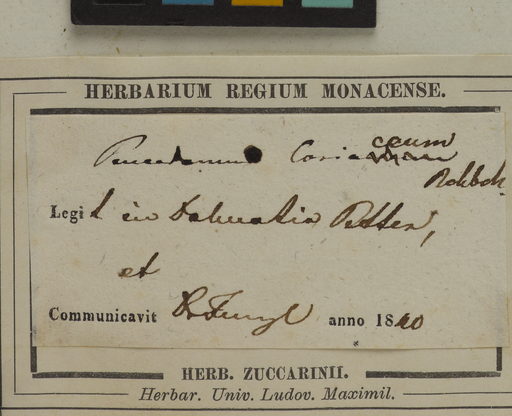 HERBARIUM REGIUM MONACENSE.
Peucedanum Coriaceum
Rchb
Legit in Dalmatia Petter,
et
Communicavit anno 1840
HERB. ZUCCARINII.
Herbar. Univ. Ludov. Maximil.